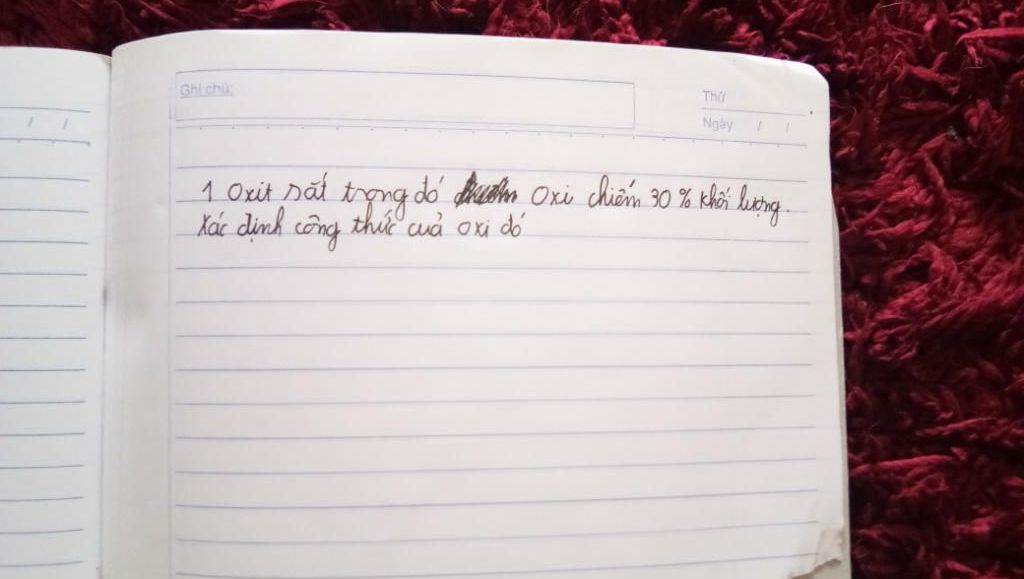 Ghi chú:
Thứ
Ngày / /
/ /
1 Oxit sắt trong đó Oxi chiếm 30 % khối lượng.
Xác định công thức cuả oxi đó